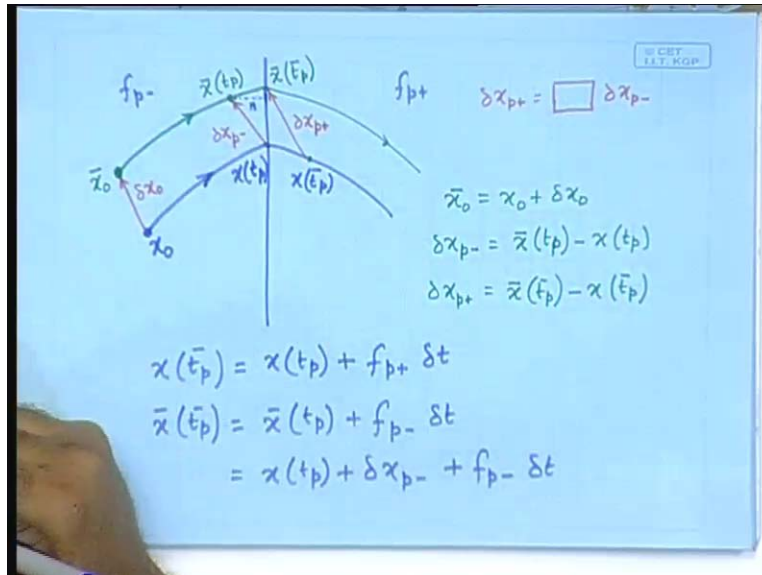 © CET
I.I.T. KGP
x̄(tₚ) x̄(t̄ₚ)
fₚ₋ fₚ₊ δxₚ₊ = □ δxₚ₋
n
δxₚ₋ δxₚ₊
x̄₀ δx₀ x(tₚ) x(t̄ₚ)
x₀
x̄₀ = x₀ + δx₀
δxₚ₋ = x̄(tₚ) − x(tₚ)
δxₚ₊ = x̄(t̄ₚ) − x(t̄ₚ)
x(t̄ₚ) = x(tₚ) + fₚ₊ δt
x̄(t̄ₚ) = x̄(tₚ) + fₚ₋ δt
= x(tₚ) + δxₚ₋ + fₚ₋ δt